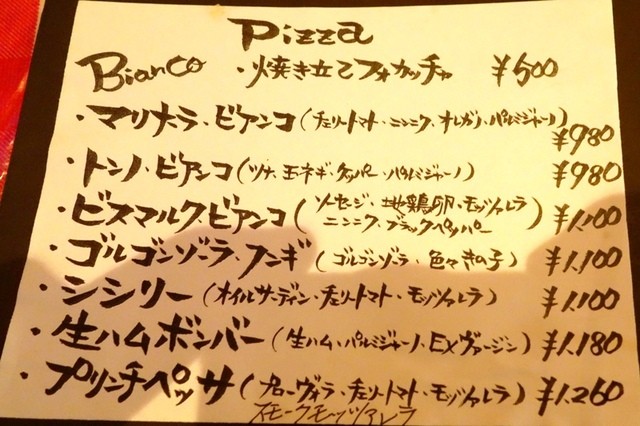 Pizza
Bianco ・焼き立てフォカッチャ ¥500
・マリナーラ・ビアンコ(チェリートマト・ニンニク、オレガノ・パルミジャーノ) ¥980
・トンノ・ビアンコ(ツナ、玉ネギ・ケッパー・パルミジャーノ) ¥980
・ビスマルク・ビアンコ(ソーセージ・地鶏卵・モッツァレラ
ニンニク・ブラックペッパー) ¥1,100
・ゴルゴンゾーラ・フンギ(ゴルゴンゾーラ・色々きの子) ¥1,100
・シシリー(オイルサーディン・チェリートマト・モッツァレラ) ¥1,100
・生ハムボンバー(生ハム・パルミジャーノ、EXヴァージン) ¥1,180
・プリンチペッサ(プローヴォラ・チェリートマト・モッツァレラ) ¥1,260
スモークモッツァレラ